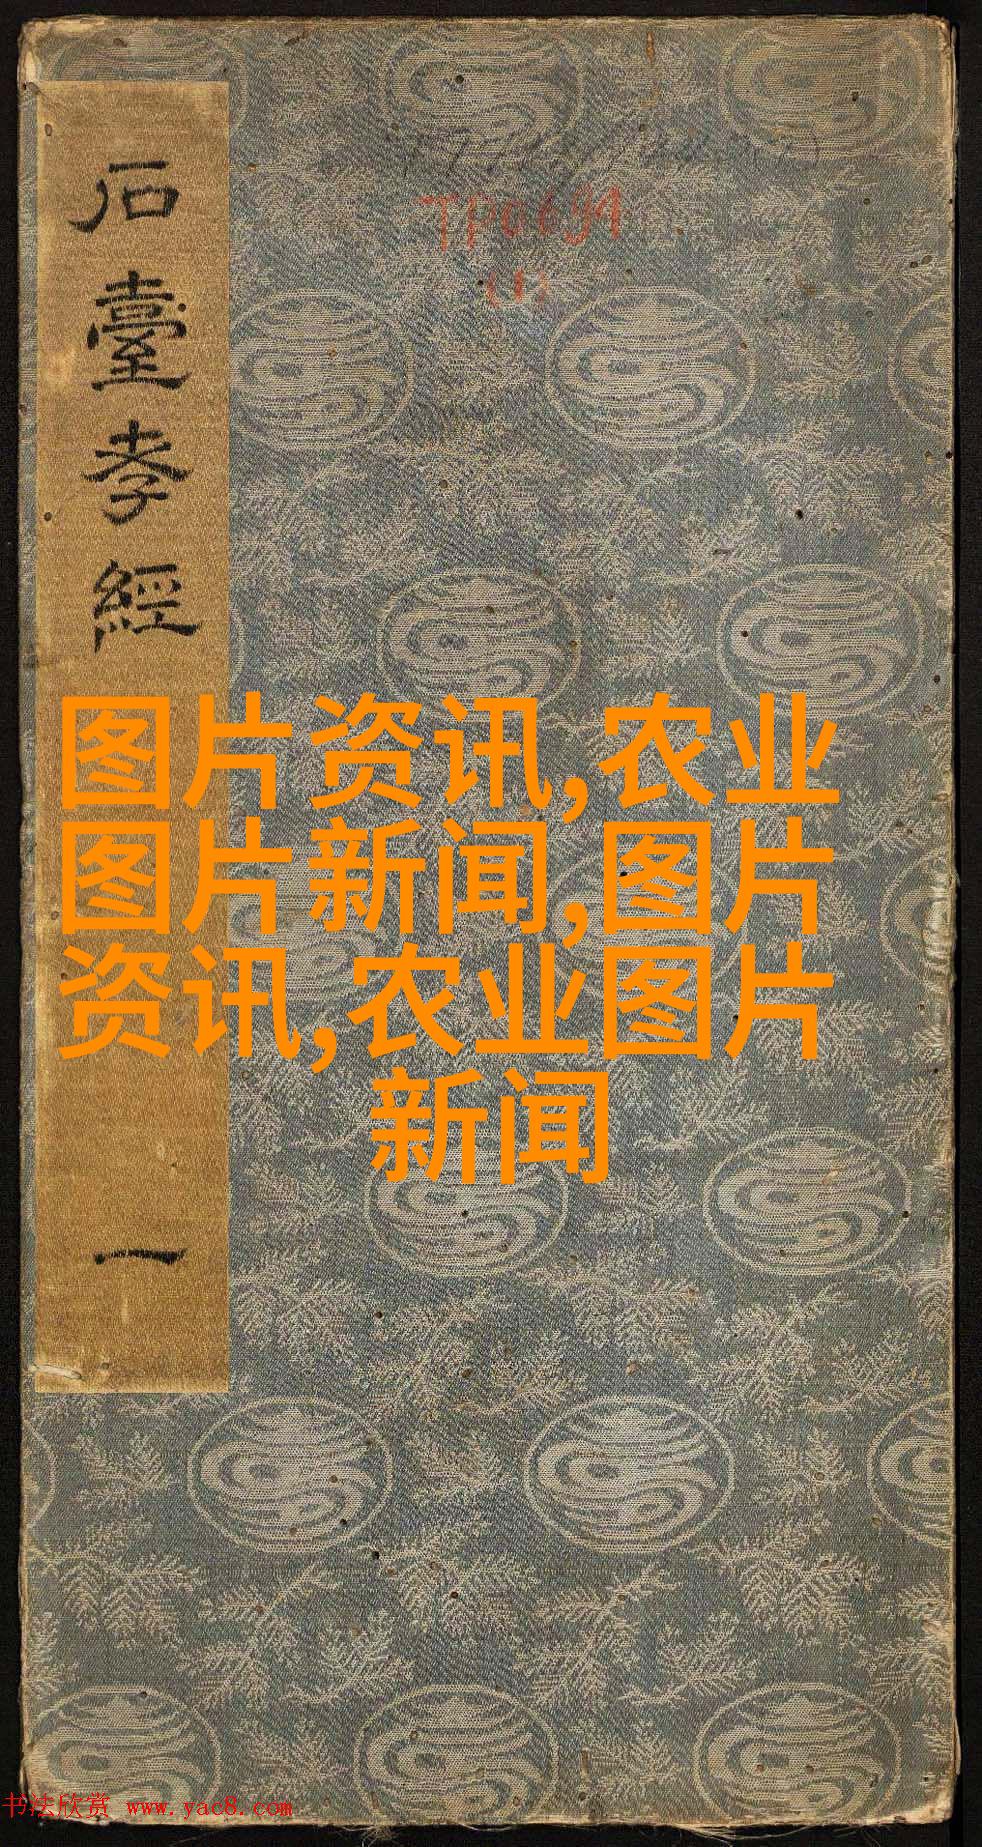 石
臺
孝
經
一
TP0691
(1)
图片资讯,农业
图片新闻,图片
资讯,农业图片
新闻
书法欣赏 www.yac8.com